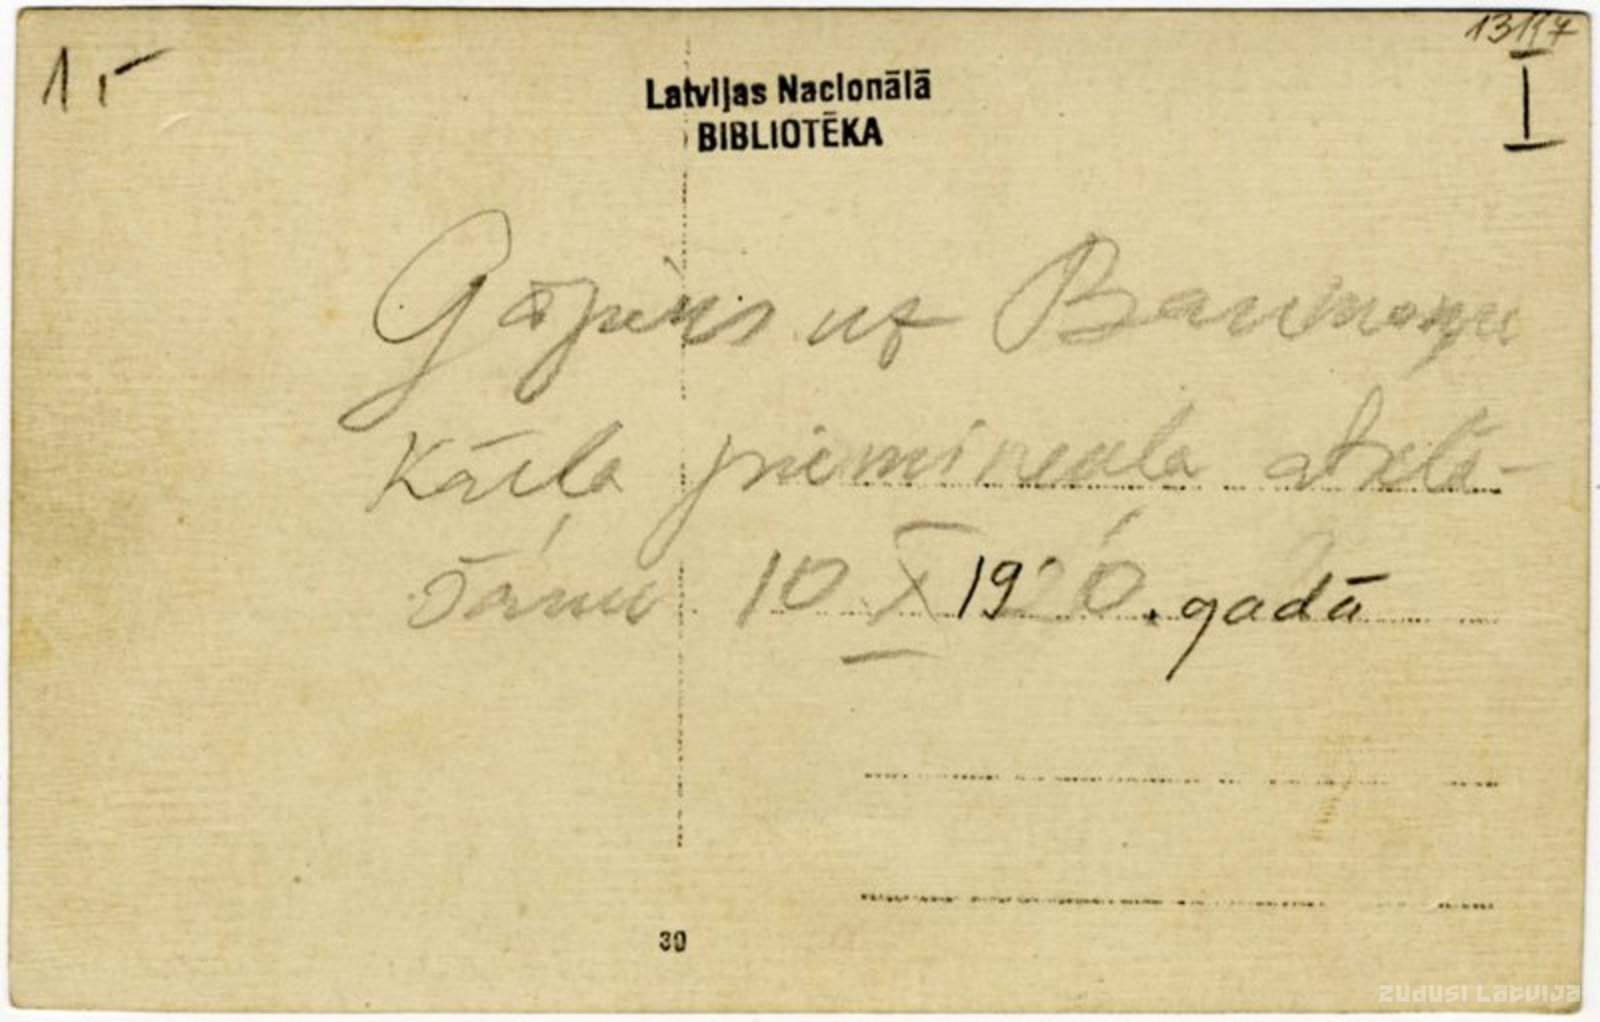 13117
1 r
I
Latvijas Nacionālā
BIBLIOTĒKA
Gājiens uz Baumaņu
Kārļa pieminekļa atklā-
šanu 10 X 1920. gadā
30
ZUDUSI LATVIJA